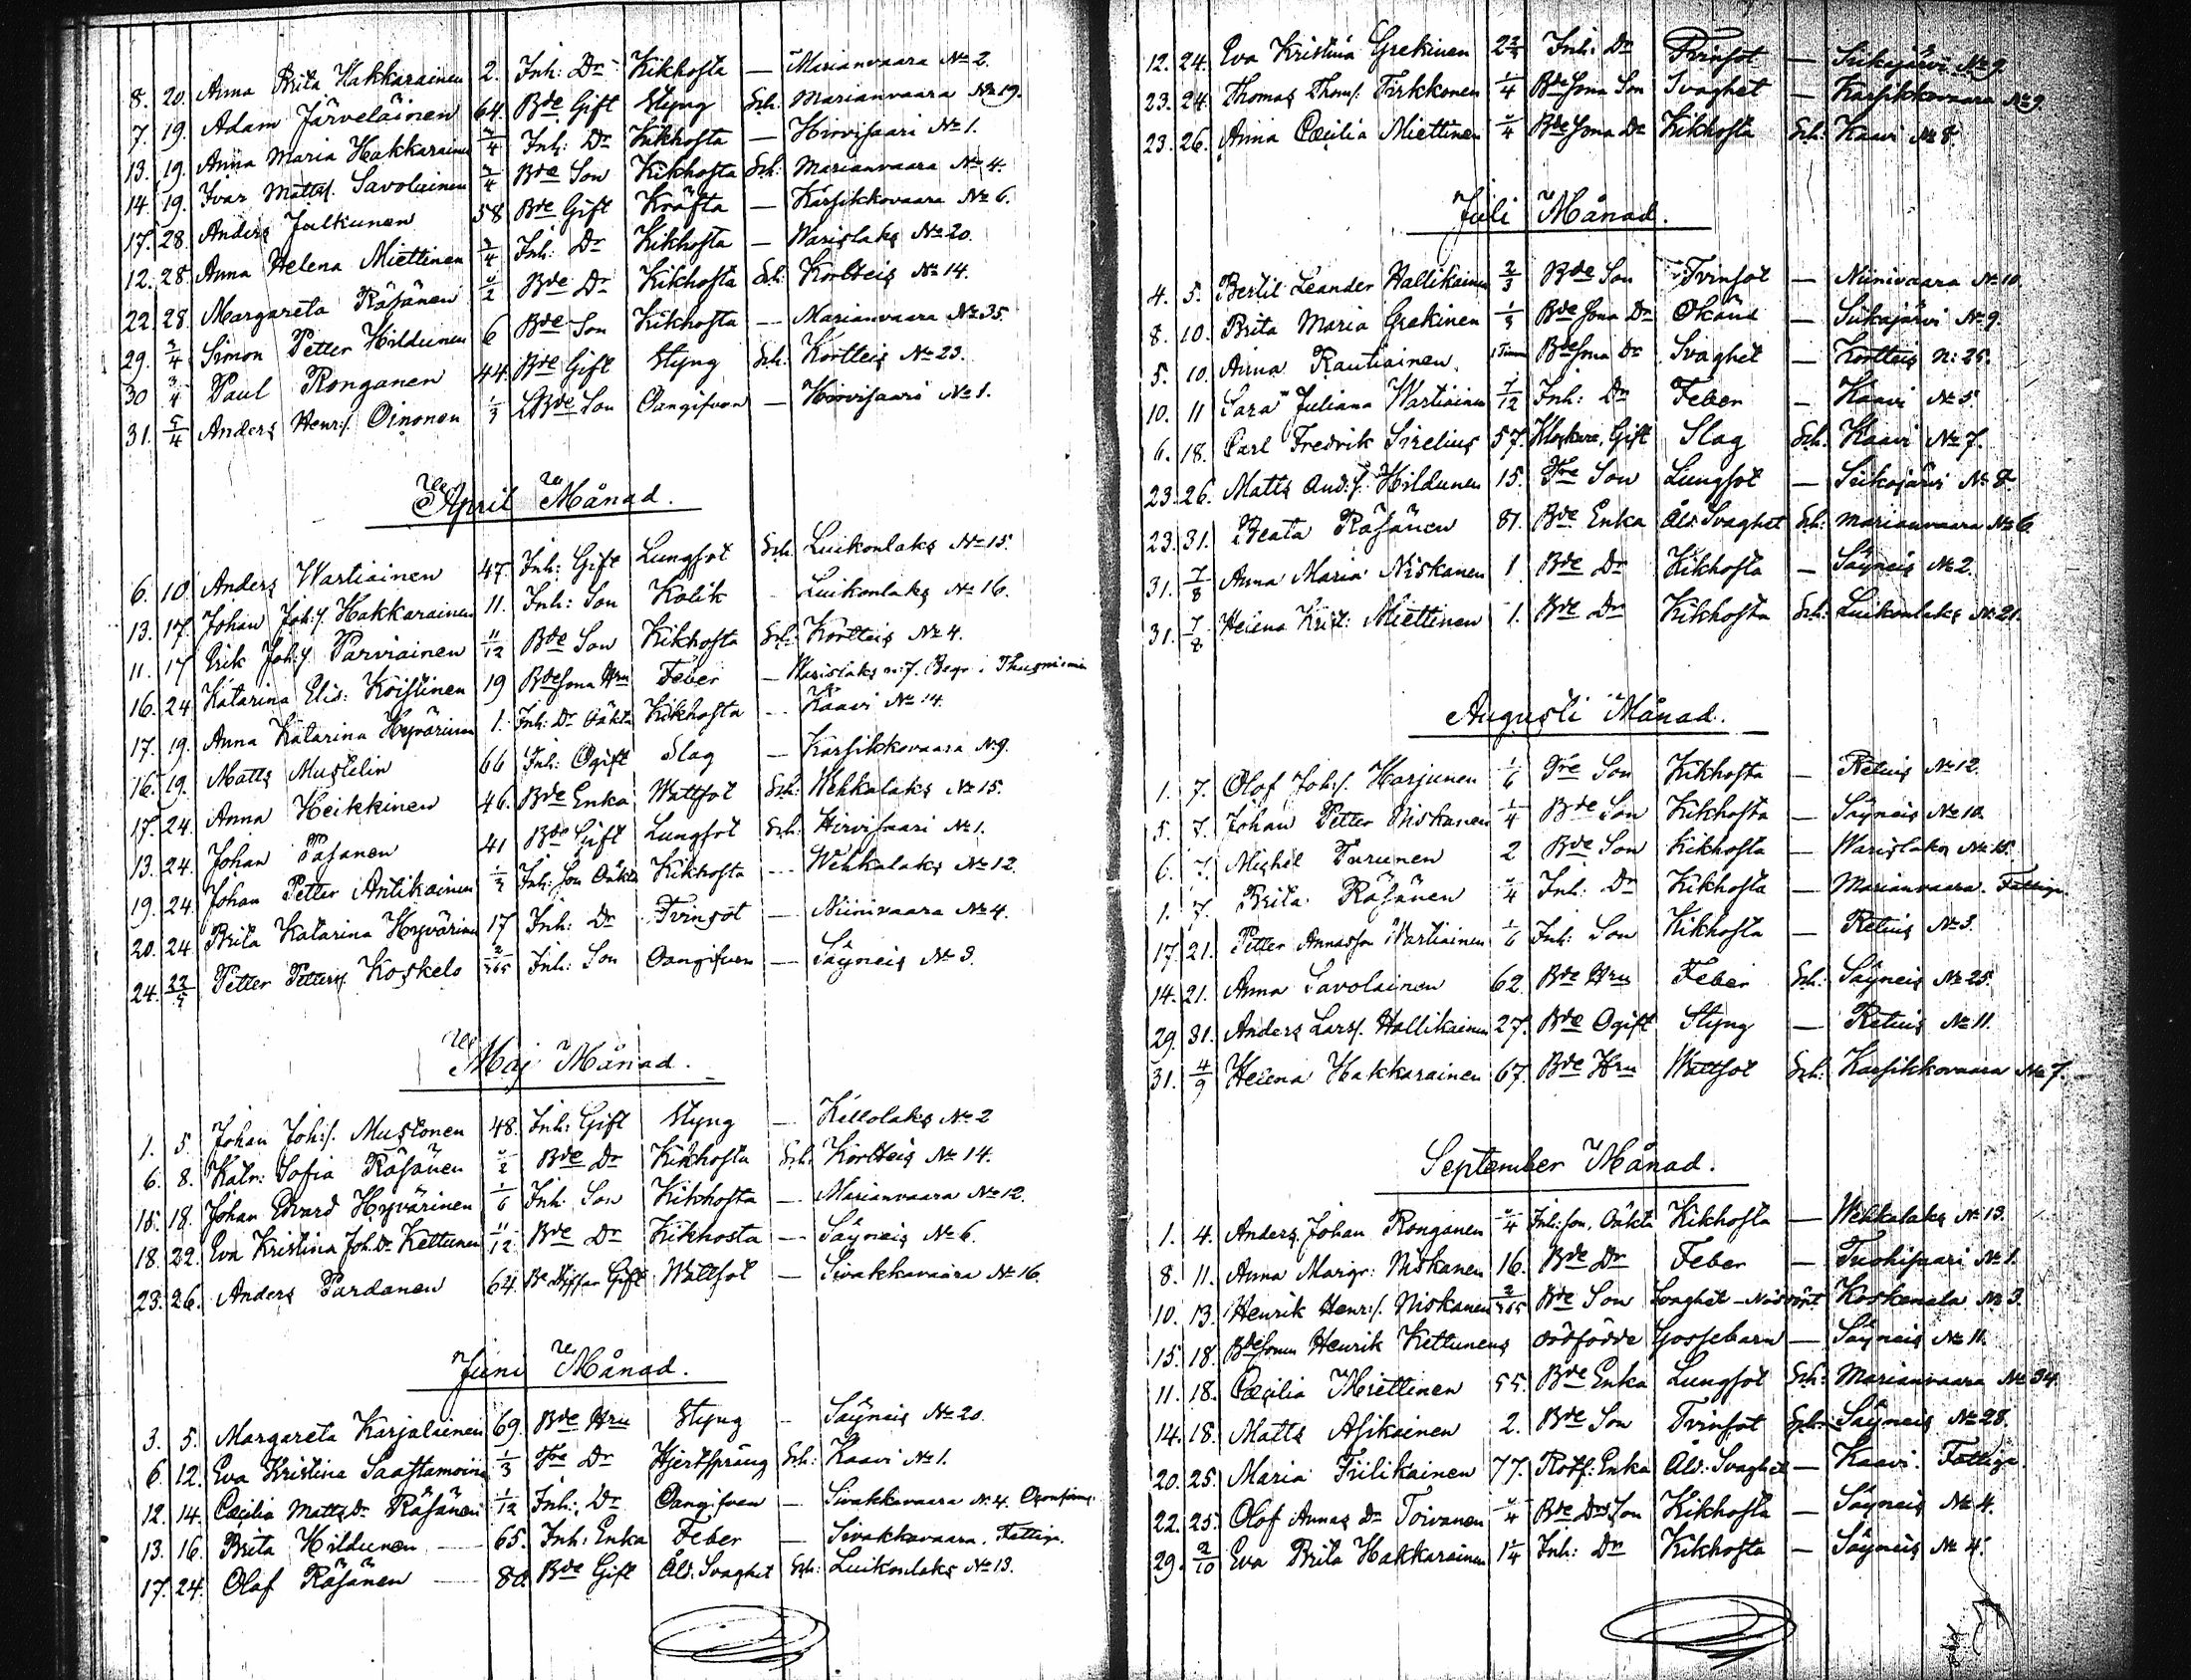 8. 20. Anna Brita Hakkarainen 2. Inh: Dr Kikhosta — Marianvaara No 2.
7. 19. Adam Järveläinen 64. Bde Gift Styng Sch: Marianvaara No 19.
13. 19. Anna Maria Hakkarainen 3/4 Inh: Dr Kikhosta — Hirvisaari No 1.
14. 19. Ivar Mattss. Savolainen 3/4 Bde Son Kikhosta Sch: Marianvaara No 4.
17. 28. Anders Julkunen 58 Bde Gift Kräfta — Karsikkovaara No 6.
12. 28. Anna Helena Miettinen 3/4 Inh: Dr Kikhosta — Warislaks No 20.
22. 28. Margareta Räsänen 1/2 Bde Dr Kikhosta Sch: Kortteis No 14.
29. 3/4 Simon Petter Hildunen 6 Bde Son Kikhosta — Marianvaara No 35.
30 3/4 Paul Ronganen 44. Bde Gift Styng Sch: Kortteis No 23.
31. 5/4 Anders Henr:s. Oinonen 1/3 Bde Son Oangifven — Hirvisaari No 1.
April Månad.
6. 10. Anders Wartiainen 47. Inh: Gift Lungsot Sch: Luikonlaks No 15.
13. 17. Johan Joh:s. Hakkarainen 11. Inh: Son Kolik Luikonlaks No 16.
11. 17 Erik Joh:s. Parviainen 11/12 Bde Son Kikhosta Sch: Kortteis No 4.
16. 24 Katarina Elis: Koistinen 19 Bdesona Hru Feber — Warislaks n: 7. Begr. i
17. 19. Anna Katarina Hyvärinen 1. Inh: Dr Oäkta Kikhosta — Kaavi No 14.
16. 19. Matts Mustelin 66 Inh: Ogift Slag — Karsikkovaara No 9.
17. 24. Anna Heikkinen 46. Bde Enka Wattsot Sch: Wehkalaks No 15.
13. 24. Johan Pasanen 41 Bde Gift Lungsot Sch: Hirvisaari No 1.
19. 24. Johan Petter Antikainen 1/3 Inh: Son Oäkta Kikhosta — Wehkalaks No 12.
20. 24 Brita Katarina Hyvärinen 17 Inh: Dr Tvinsot — Niinivaara No 4.
24. 22/5 Petter Petters. Koskelo 2/365 Inh: Son Oangifven — Säyneis No 3.
Maj Månad.
1. 5. Johan Joh:s. Mustonen 48. Inh: Gift Styng — Killolaks No 2
6. 8. Katr: Sofia Räsänen 1/2 Bde Dr Kikhosta Sch: Kortteis No 14.
15. 18. Johan Edvard Hyvärinen 1/6 Inh: Son Kikhosta — Marianvaara No 12.
18. 22. Eva Kristina Joh. Dr Kettunen 11/12 Bde Dr Kikhosta — Säyneis No 6.
23. 26. Anders Pardanen 64. Gift Wattsot — Sivakkavaara No 16.
Juni Månad.
3. 5. Margareta Karjalainen 69. Bde Hru Styng — Säyneis No 20.
6. 12. Eva Kristina Saastamoinen 1/3 Tre Dr Hjertsprång Sch: Kaavi No 1.
12. 14. Cæcilia Matts Dr Räsänen 1/12 Inh: Dr Oangifven — Sivakkavaara No 4.
13. 16. Brita Hildunen 65. Inh: Enka Feber — Sivakkavaara. Fattige.
17. 24. Olof Räsänen 80. Bde Gift Åld: Svaghet Sch: Luikonlaks No 13.
12. 24. Eva Kristina Grekinen Inh: Dr Tvinsot — Siikajärvi No 9.
23. 24. Thomas Thoms. Tirkkonen 1/4 Bdesona Son Svaghet — Karsikkovaara No 9.
23. 26. Anna Cæcilia Miettinen 3/4 Bdesona Dr Kikhosta Sch: Kaavi No 8.
Juli Månad.
4. 5. Bertil Leander Hallikainen 2/3 Bde Son Tvinsot — Niinivaara No 10.
8. 10. Brita Maria Grekinen 1/3 Bdesona Dr Okänd — Siikajärvi No 9.
5. 10. Anna Rautiainen 1 Timme Bdesona Dr Svaghet — Kortteis N: 25.
10. 11 Sara Juliana Wartiainen 7/12 Inh: Dr Feber — Kaavi No 5.
6. 18. Carl Fredrik Sirelius 57. Klockare, Gift Slag Sch: Kaavi No 7.
23. 26. Matts And:s. Hildunen 15. Tre Son Lungsot — Siikajärvi No 8.
23. 31. Beata Räsänen 81. Bde Enka Åld: Svaghet Sch: Marianvaara No 6
31. 7/8 Anna Maria Niskanen 1 Bde Dr Kikhosta — Säyneis No 2.
31. 7/8 Helena Krist: Miettinen 1. Bde Dr Kikhosta Sch: Luikonlaks No 21.
Augusti Månad.
1. 7. Olof Joh:s. Harjunen 1/6 Tre Son Kikhosta — Retuis No 12.
5. 7. Johan Petter Niskanen 1/4 Bde Son Kikhosta — Säyneis No 10.
6. 7. Michel Turunen 2 Bde Son Kikhosta — Warislaks No 15.
1. 7. Brita Räsänen 3/4 Inh: Dr Kikhosta — Marianvaara. Fattige.
17. 21. Petter Annasson Wartiainen 1/6 Inh: Son Kikhosta — Retuis No 3.
14. 21. Anna Savolainen 62. Bde Hru Feber Sch: Säyneis No 25.
29. 31. Anders Larss. Hallikainen 27. Bde Ogift Styng — Retuis No 11.
31. 4/9 Helena Hakkarainen 67. Bde Hru Wattsot Sch: Karsikkovaara No 7.
September Månad.
1. 4. Anders Johan Ronganen 3/4 Inh: son, Oäkta Kikhosta — Wehkalaks No 13.
8. 11. Anna Margr: Niskanen 16. Bde Dr Feber — Tuohisaari No 1.
10. 13. Henrik Henr:s. Niskanen 2/365 Bde Son Svaghet — Nöddöpt Koskenala No 3.
15. 18. Bdesonen Henrik Kettunens dödfödde Gossebarn — Säyneis No 11.
11. 18. Cæcilia Miettinen 55. Bde Enka Lungsot Sch: Marianvaara No 34.
14. 18. Matts Asikainen 2. Bde Son Tvinsot Sch: Säyneis No 28.
20. 25. Maria Tiilikainen 77. Rotf: Enka Åld: Svaghet — Kaavi. Fattige.
22. 25. Olof Annas Dr Toivanen 3/4 Bde Drs Son Kikhosta — Säyneis No 4.
29. 2/10 Eva Brita Hakkarainen 1 1/4 Inh: Dr Kikhosta — Säyneis No 4.